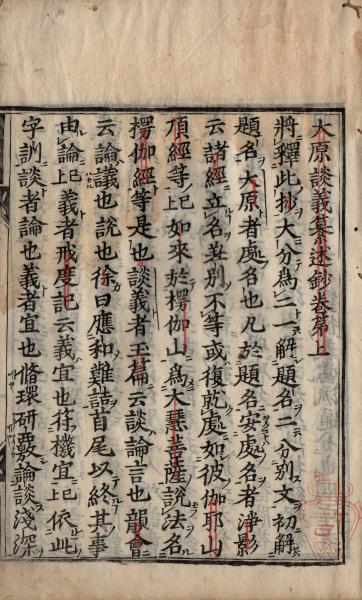 大原談義纂述鈔卷第上
將釋此抄大分爲二一解題名二分別文初解
題名大原者處名也凡於題名安處名者淨影
云諸經立名差別不等或復就處如彼伽耶山
頂經等已如來於楞伽山爲大慧菩薩說法名
楞伽經等是也談義者玉篇云談論言也韻會
云論議也說也徐曰應和難詰首尾以終其事
由論已義者戒度記云義宜也待機宜已依此
字訓談者論也義者宜也脩環研覈論談淺深